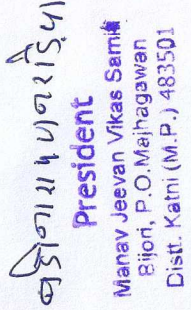 President
Manav Jeevan Vikas Samiti
Bijori, P.O. Majhagawan
Distt. Katni (M.P.) 483501